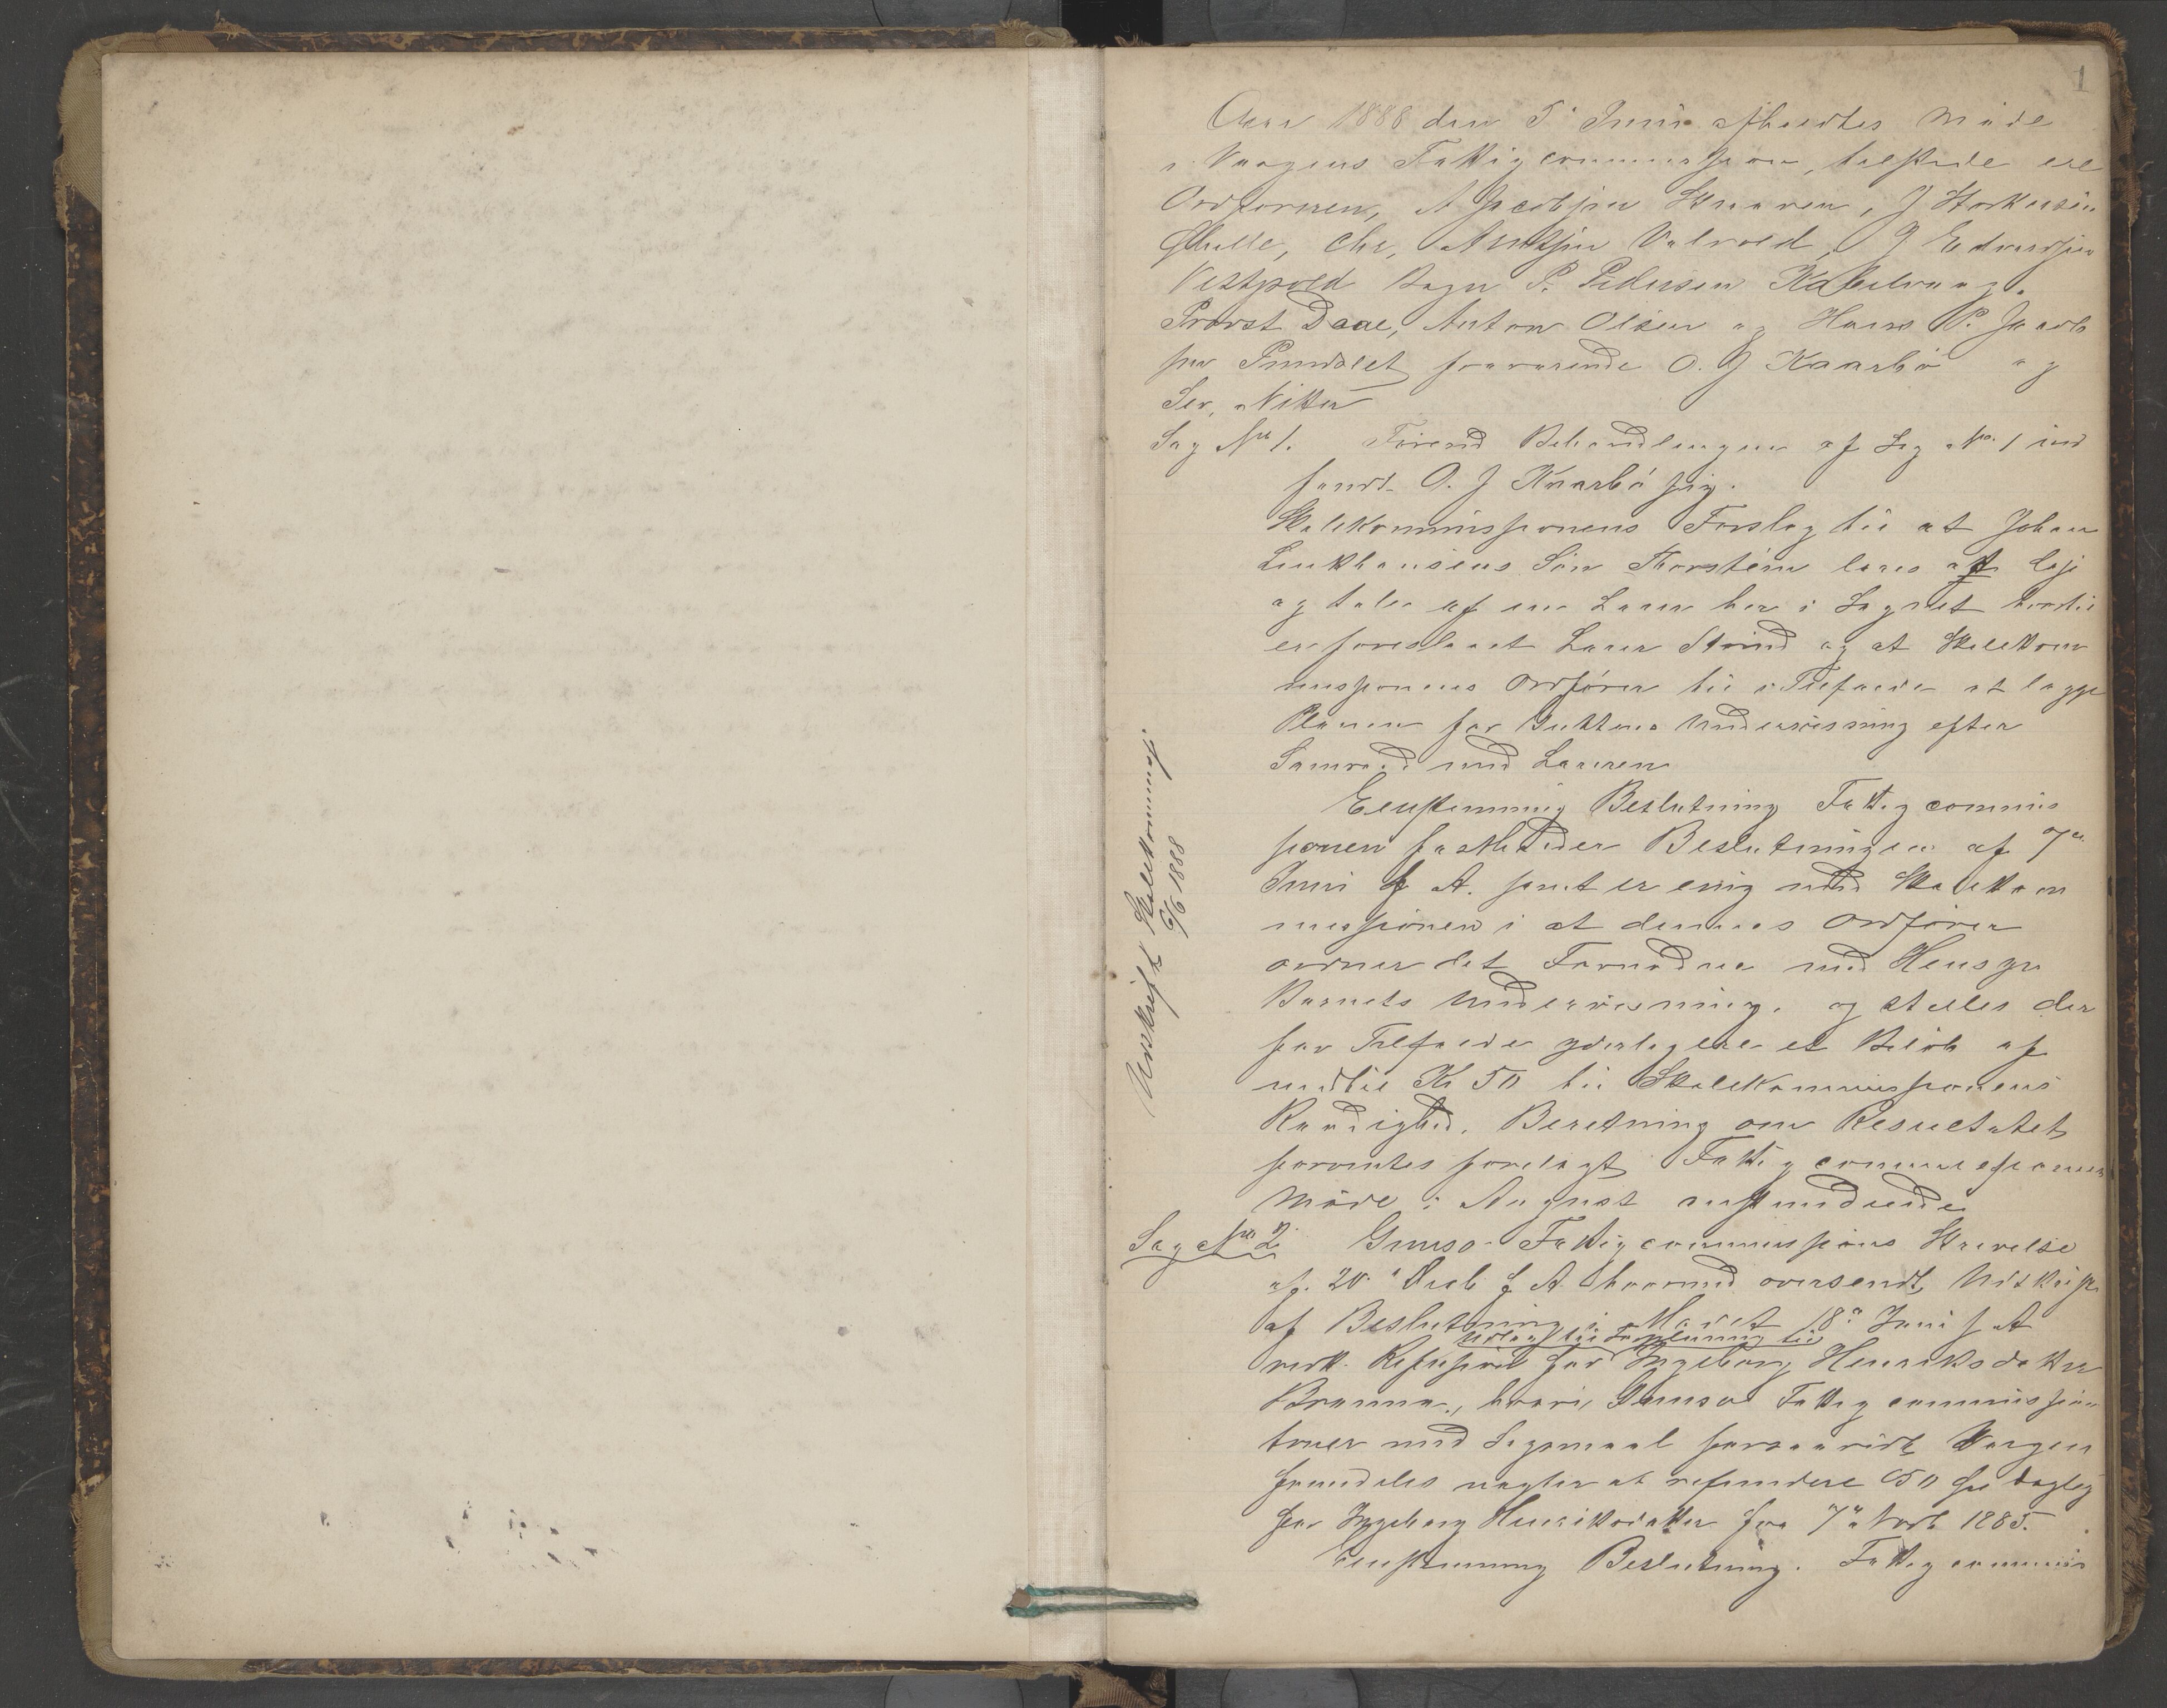 1
Aar 1888 den 5 Juni afholdtes Møde
i Vaagens Fattigcommission, tilstede ere
Ordføreren, A Jacobsen Skraaven, J Storkersen
Ørsle, Chr, Arntzen Valvold, J Edvardsen
Vestpold Bagn P. Pedersen Kabelvaag.
Provst Daae, Anton Olsen og Hans P. Jacob
sen fraværende O. J Kaarbø og
Ser, Nitter
Sag No 1. Førend Behandlingen af Sag No. 1 ind
fandt O. J Kaarbø sig.
Skolekommissionens Forslag til at Johan
Søn Thorstein læres at læse
og tale af en Lærer her i Sognet hertil
er foreslaaet Lærer Strind og at Skolekom
missionens Ordfører til i Tilfælde at lægge
Planen for Guttens Undervisning efter
Samraad med Læreren
Eenstemmig Beslutning Fattigcommis
sionen fastholder Beslutningen af 7de
Juni f A. samt er enig med Skolekom
missionen i at dennes Ordfører
ordner det Fornødne med Hensyn
Barnets Undervisning. og stilles der
for Tilfælde yderligere et Beløb af
indtil Kr 50 til Skolekommissionens
Raadighed. Beretning om Resultatet
forventes forelagt Fattigcommissionens
Møde i August
Udskrift Skolekommisj.
6/6 1888
Sag No 2 Gimsø Fattigcommissions Skrivelse
af 20 f A hvormed oversendt Udskrift
af Beslutning i Mødet 18de Juni f A
Udlæg til Forpleining til
vedk. Refusion for Ingeborg Henriksdatter
Brænna, hvori Gimsø Fattigcommission
truer med Sagsmaal forsaavidt Vaagen
fremdeles vægter at refundere 50 Øre daglig
for Ingeborg Henriksdatter fra 7de Novb 1885.
Eenstemmig Beslutning. Fattigcommis